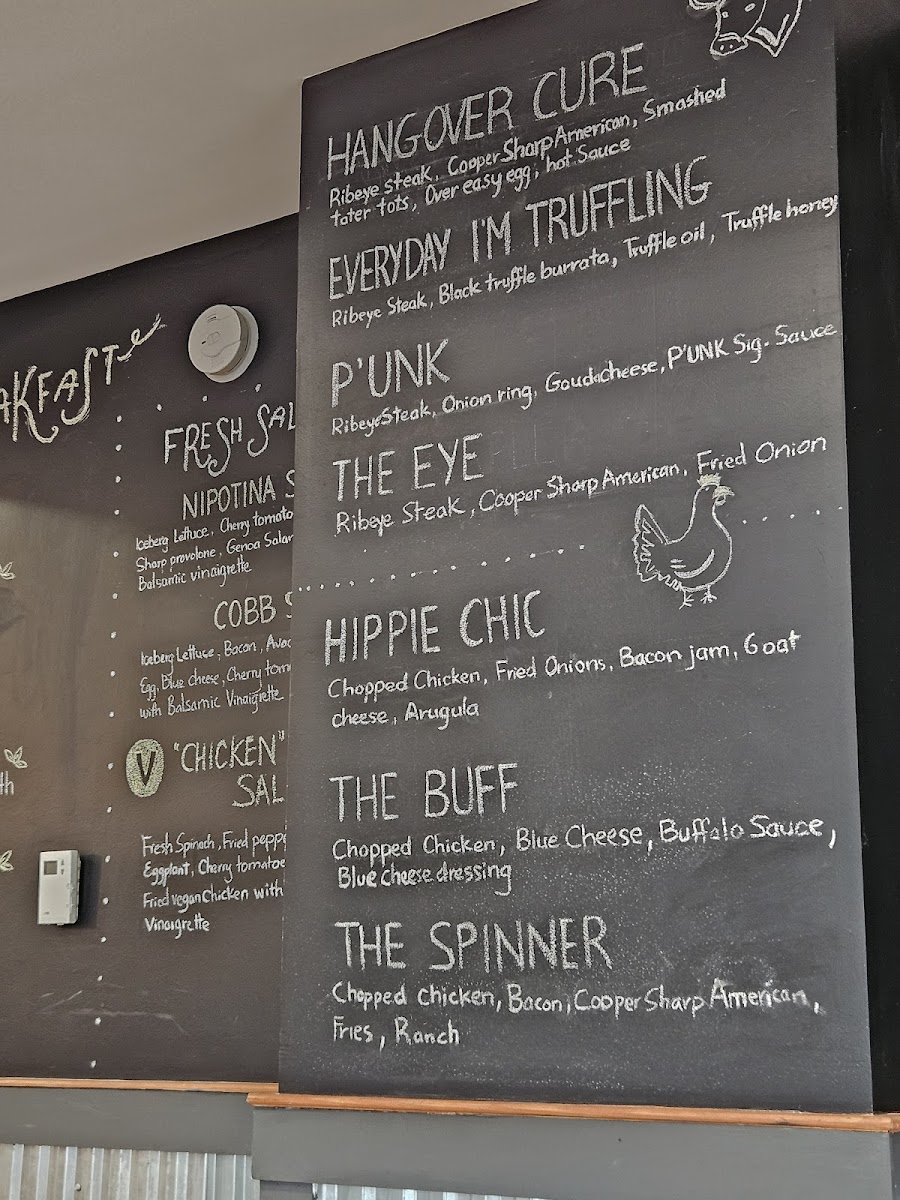 HANGOVER CURE
Ribeye steak, Cooper Sharp American, Smashed
tater tots, Over easy egg, hot Sauce
EVERYDAY I'M TRUFFLING
Ribeye Steak, Black truffle burrata, Truffle oil, Truffle honey
P'UNK
Ribeye Steak, Onion ring, Gouda cheese, P'UNK Sig. Sauce
THE EYE
Ribeye Steak, Cooper Sharp American, Fried Onion
HIPPIE CHIC
Chopped Chicken, Fried Onions, Bacon jam, Goat
cheese, Arugula
THE BUFF
Chopped Chicken, Blue Cheese, Buffalo Sauce,
Blue cheese dressing
THE SPINNER
Chopped Chicken, Bacon, Cooper Sharp American,
Fries, Ranch
AKFAST
FRESH SAL
NIPOTINA S
Iceberg Lettuce, Cherry tomato
Sharp provolone, Genoa Salam
Balsamic vinaigrette
COBB S
Iceberg Lettuce, Bacon, Avoc
Egg, Blue cheese, Cherry tom
with Balsamic Vinaigrette
V "CHICKEN"
SAL
Fresh Spinach, Fried peppe
Eggplant, Cherry tomatoe
Fried vegan Chicken with
Vinaigrette
th